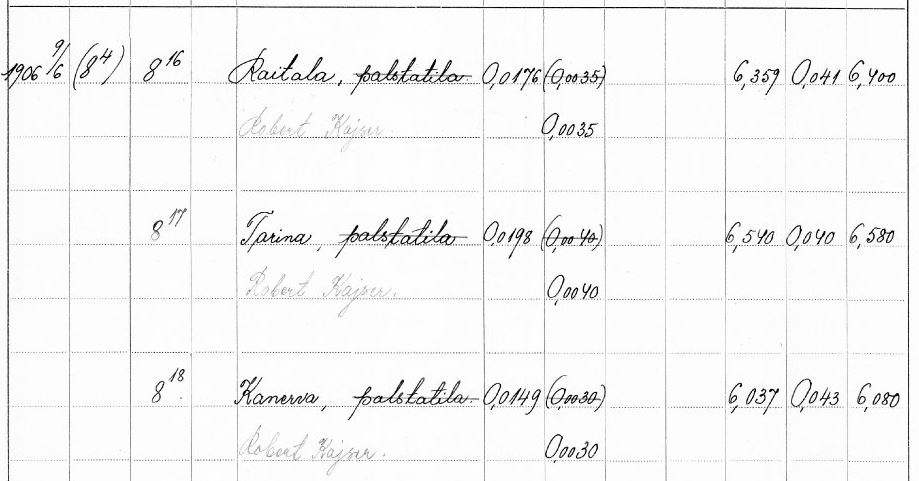 1906 9/6 (8⁴) 8¹⁶ Raitala, palstatila 0,0176 (0,0035) 6,359 0,041 6,400
Robert Kajser. 0,0035
8¹⁷ Tarina, palstatila 0,0198 (0,0040) 6,540 0,040 6,580
Robert Kajser. 0,0040
8¹⁸ Kanerva, palstatila 0,0149 (0,0030) 6,037 0,043 6,080
Robert Kajser. 0,0030